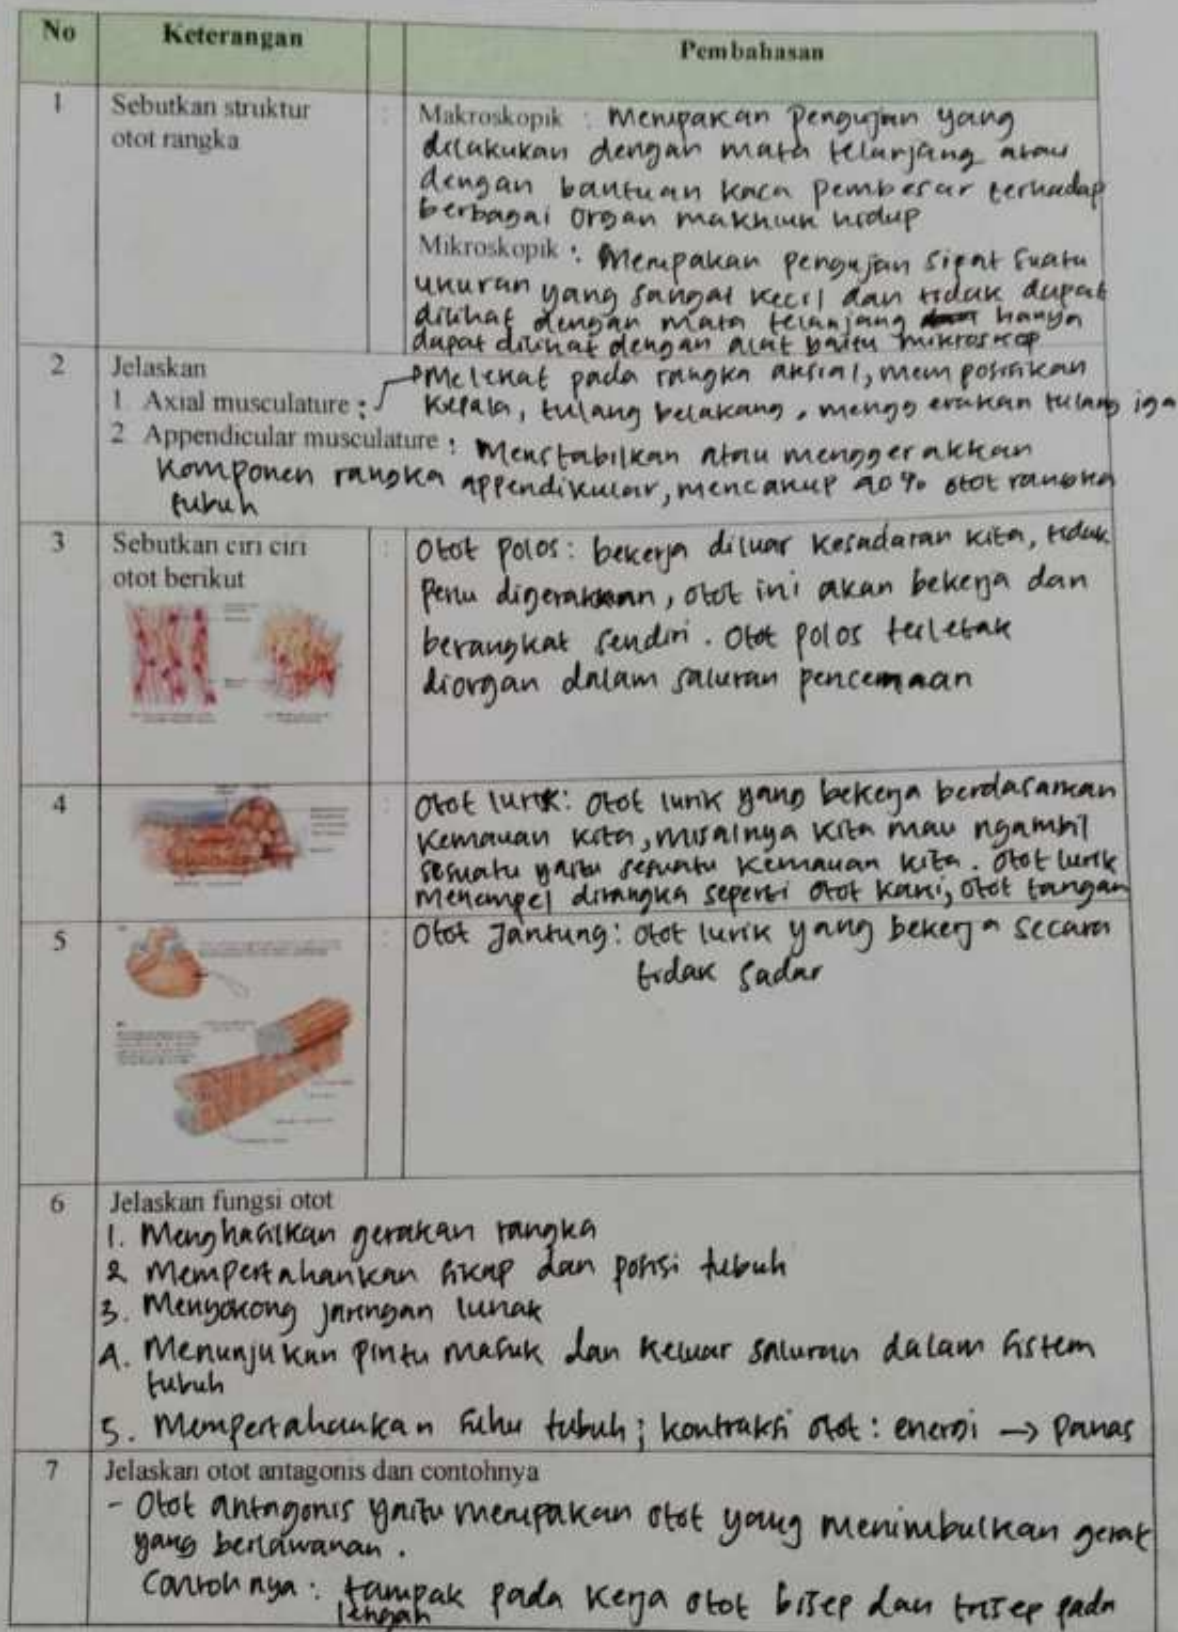 No Keterangan Pembahasan
1 Sebutkan struktur
otot rangka
:
Makroskopik : Merupakan Pengujian yang
dilakukan dengan mata telanjang atau
dengan bantuan kaca pembesar terhadap
berbagai organ makhluk hidup
Mikroskopik : Merupakan pengujian sipat suatu
ukuran yang sangat kecil dan tidak dapat
dilihat dengan mata telanjang hanya
dapat dilihat dengan alat bantu mikroskop
2 Jelaskan
1. Axial musculature : Melekat pada rangka aksial, memposisikan
kepala, tulang belakang, menggerakan tulang iga
2 Appendicular musculature : Menstabilkan atau menggerakkan
komponen rangka appendikular, mencakup 40% otot rangka
tubuh
3 Sebutkan ciri ciri
otot berikut
:
Otot polos : bekerja diluar kesadaran kita, tidak
perlu digerakkan, otot ini akan bekerja dan
berangkat sendiri. Otot polos terletak
diorgan dalam saluran pencernaan
4 :
Otot lurik : Otot lurik yang bekerja berdasarkan
kemauan kita, misalnya kita mau ngambil
sesuatu yaitu sesuatu kemauan kita. Otot lurik
menempel dirangka seperti otot kaki, otot tangan
5 :
Otot Jantung : Otot lurik yang bekerja secara
tidak sadar
6 Jelaskan fungsi otot
1. Menghasilkan gerakan rangka
2 Mempertahankan sikap dan posisi tubuh
3. Menyokong jaringan lunak
4. Menunjukan pintu masuk dan keluar saluran dalam sistem
tubuh
5. Mempertahankan suhu tubuh ; kontraksi otot : energi → panas
7 Jelaskan otot antagonis dan contohnya
- Otot antagonis yaitu merupakan otot yang menimbulkan gerak
yang berlawanan.
Contohnya : tampak pada kerja otot bisep dan trisep pada
lengan